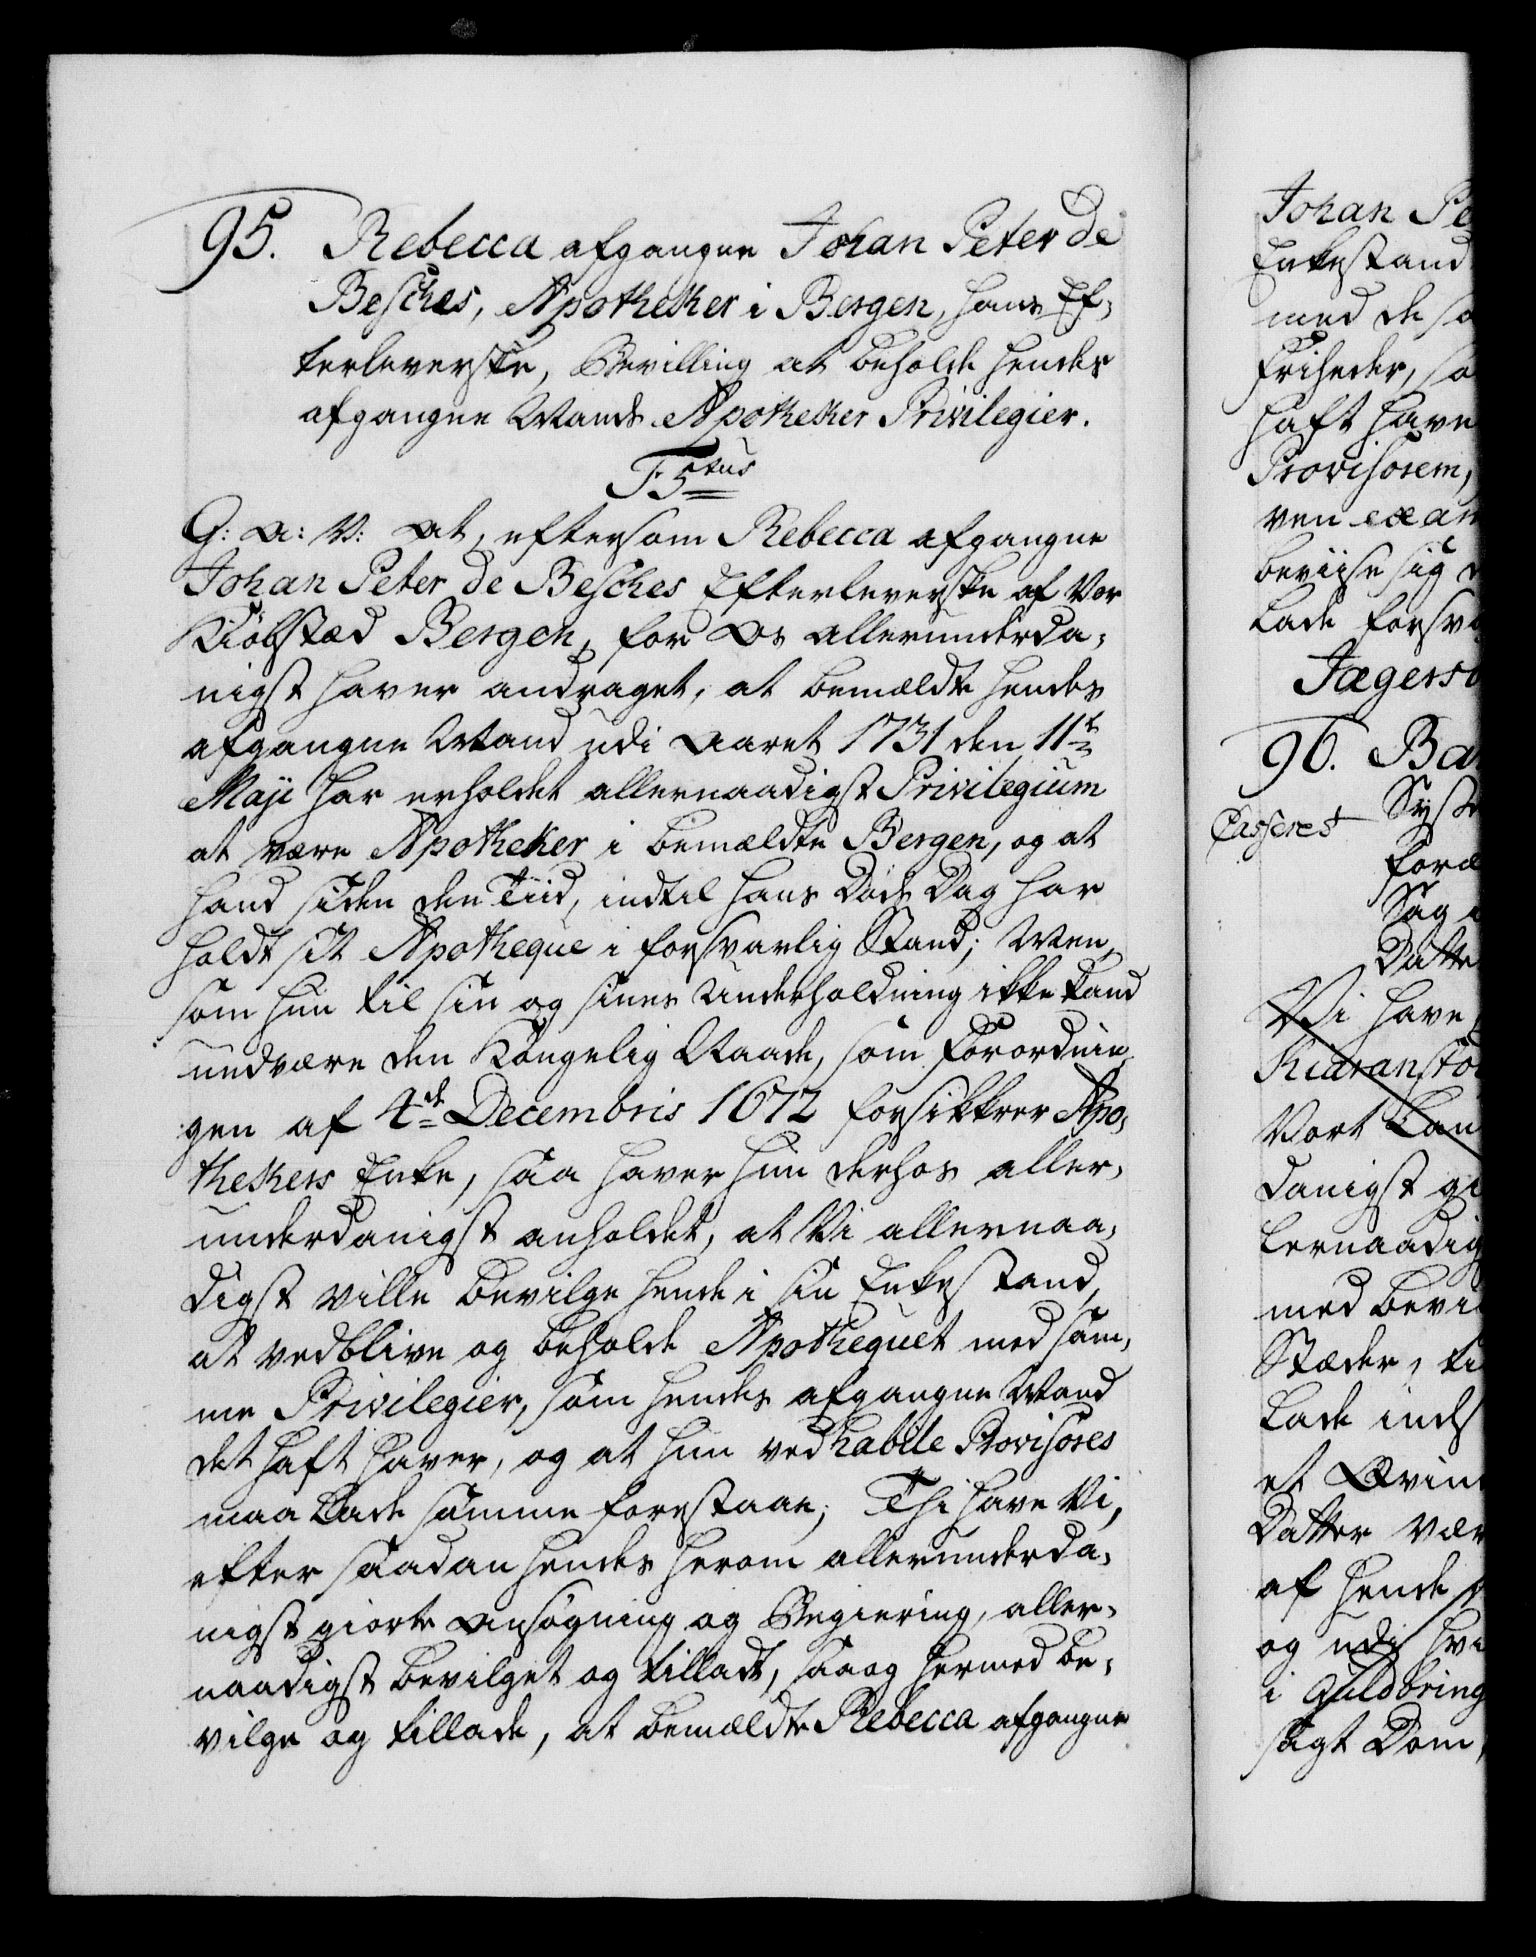 95. Rebecca afgangne Johan Peter de
Besches, Apotheker i Bergen, hans Ef-
terleverske, Bevilling at beholde hendes
afgangne Mands Apotheker Privilegier.
F 5tus
G: A: V: At, eftersom Rebecca afgangne
Johan Peter de Besches Efterleverske af Vor
Kiöbstæd Bergen, for Os allerunderda-
nigst haver andraget, at bemældte hendes
afgangne Mand udi Aaret 1731 den 11te
Maji har erholdet allernaadigst Privilegium
at være Apotheker i bemældte Bergen, og at
hand siden den Tiid, indtil hans Döds Dag har
holdt sit Apotheque i forsvarlig Stand; Men,
som hun til sin og sines Underholdning ikke kand
undvære den Kongelig Naade, som Forordnin-
gen af 4de Decembris 1672 forsikkrer Apo-
thekers Enke, saa haver hun derhos aller-
underdanigst anholdet, at Vi allernaa-
digst ville bevilge hende i sin Enkestand,
at vedblive og beholde Apothequet med sam-
me Privilegier, som hendes afgangne Mand
det haft haver, og at hun ved habile Provisores
maa lade samme forestaae; Thi have Vi,
efter saadan hendes herom allerunderda-
nigst giorte Ansögning og Begiering, aller-
naadigst bevilget og tilladt, saa og hermed be-
vilge og tillade, at bemældte Rebecca afgangne
Johan Pe
Enkestand
med de sa
Friheder, so
haft have
Provisorem,
ven exam
beviise sig
lade forsva
Jægersb
96. Ba
Casseret
Syst
foræ
Sag
Datte
Vi have
Vort Lan
danigst gi
lernaadig
med bevil
Stæder, ti
lade inds
et Qvin
Datter vær
af hende
og udi hvi
i Guldbring
sagt Dom